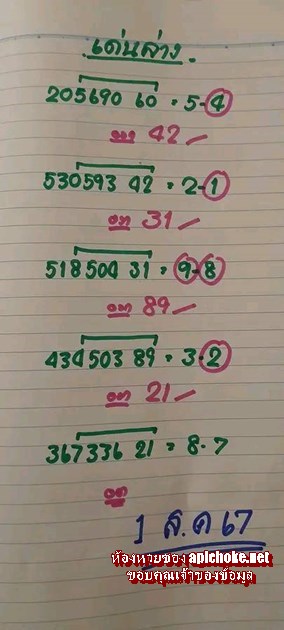 เด่นล่าง
205690 60 = 5-4
ออก 42
530593 42 = 2-1
ออก 31
518504 31 = 9-8
ออก 89
434503 89 = 3-2
ออก 21
367336 21 = 8-7
ออก
1 ส.ค 67
ห้องหวยของ apichoke.net
ขอบคุณเจ้าของข้อมูล